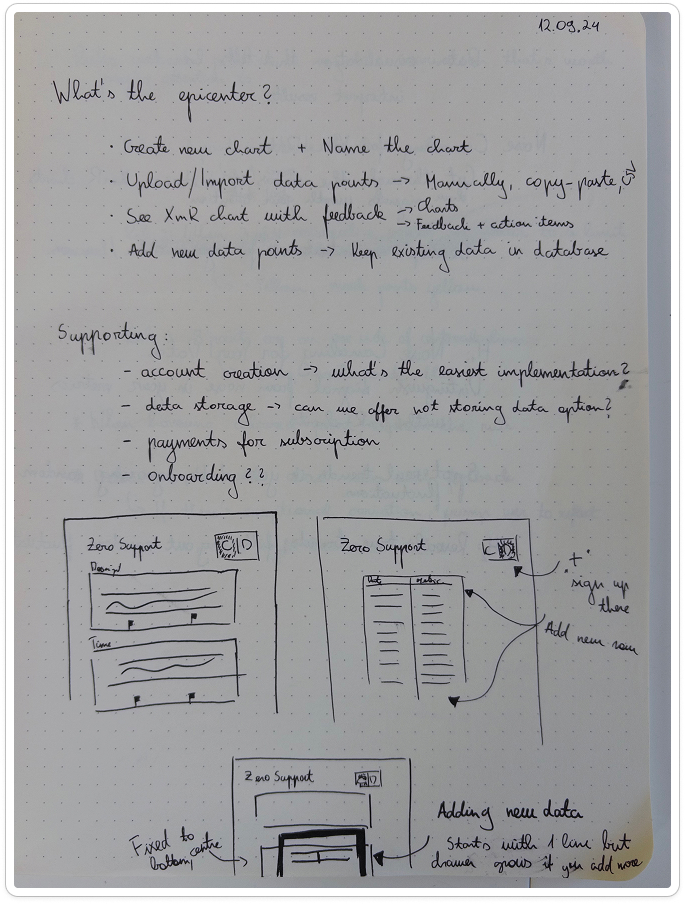 12.09.24
What's the epicenter?
· Create new chart + Name the chart
· Upload/Import data points -> Manually, copy-paste,
· See XmR chart with feedback -> Charts
-> Feedback + action items
· Add new data points -> Keep existing data in database
Supporting:
- account creation -> what's the easiest implementation?
- data storage -> can we offer not storing data option?
- payments for subscription
- onboarding??
Zero Support C D
Zero Support C D
"+"
sign up
there
Add new row
Time
Zero Support D
Adding new data
Fixed to
centre
bottom,
Starts with 1 line but
drawer grows if you add more